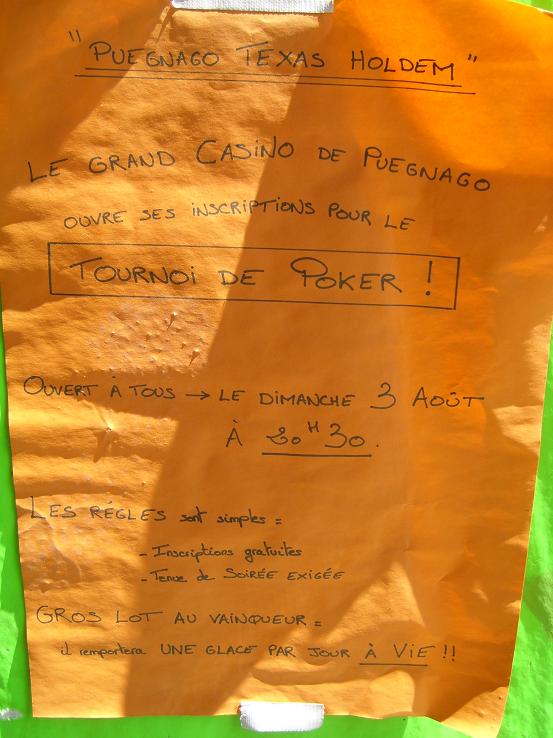 "PUEGNAGO TEXAS HOLDEM"
LE GRAND CASINO DE PUEGNAGO
OUVRE SES INSCRIPTIONS POUR LE
TOURNOI DE POKER !
OUVERT À TOUS → LE DIMANCHE 3 AOÛT
À 20H30.
LES RÉGLES sont simples =
- Inscriptions gratuites
- Tenue de SOIRÉE EXIGÉE
GROS LOT AU VAINQUEUR =
il remportera UNE GLACE PAR JOUR À VIE !!